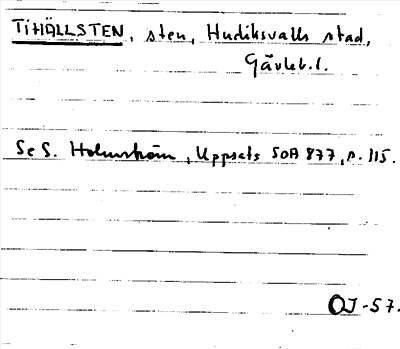 TIHÄLLSTEN, sten, Hudiksvalls stad,
Gävleb.l.
Se S. Holmström, Uppsats SOA 877, p. 115.
OJ-57.